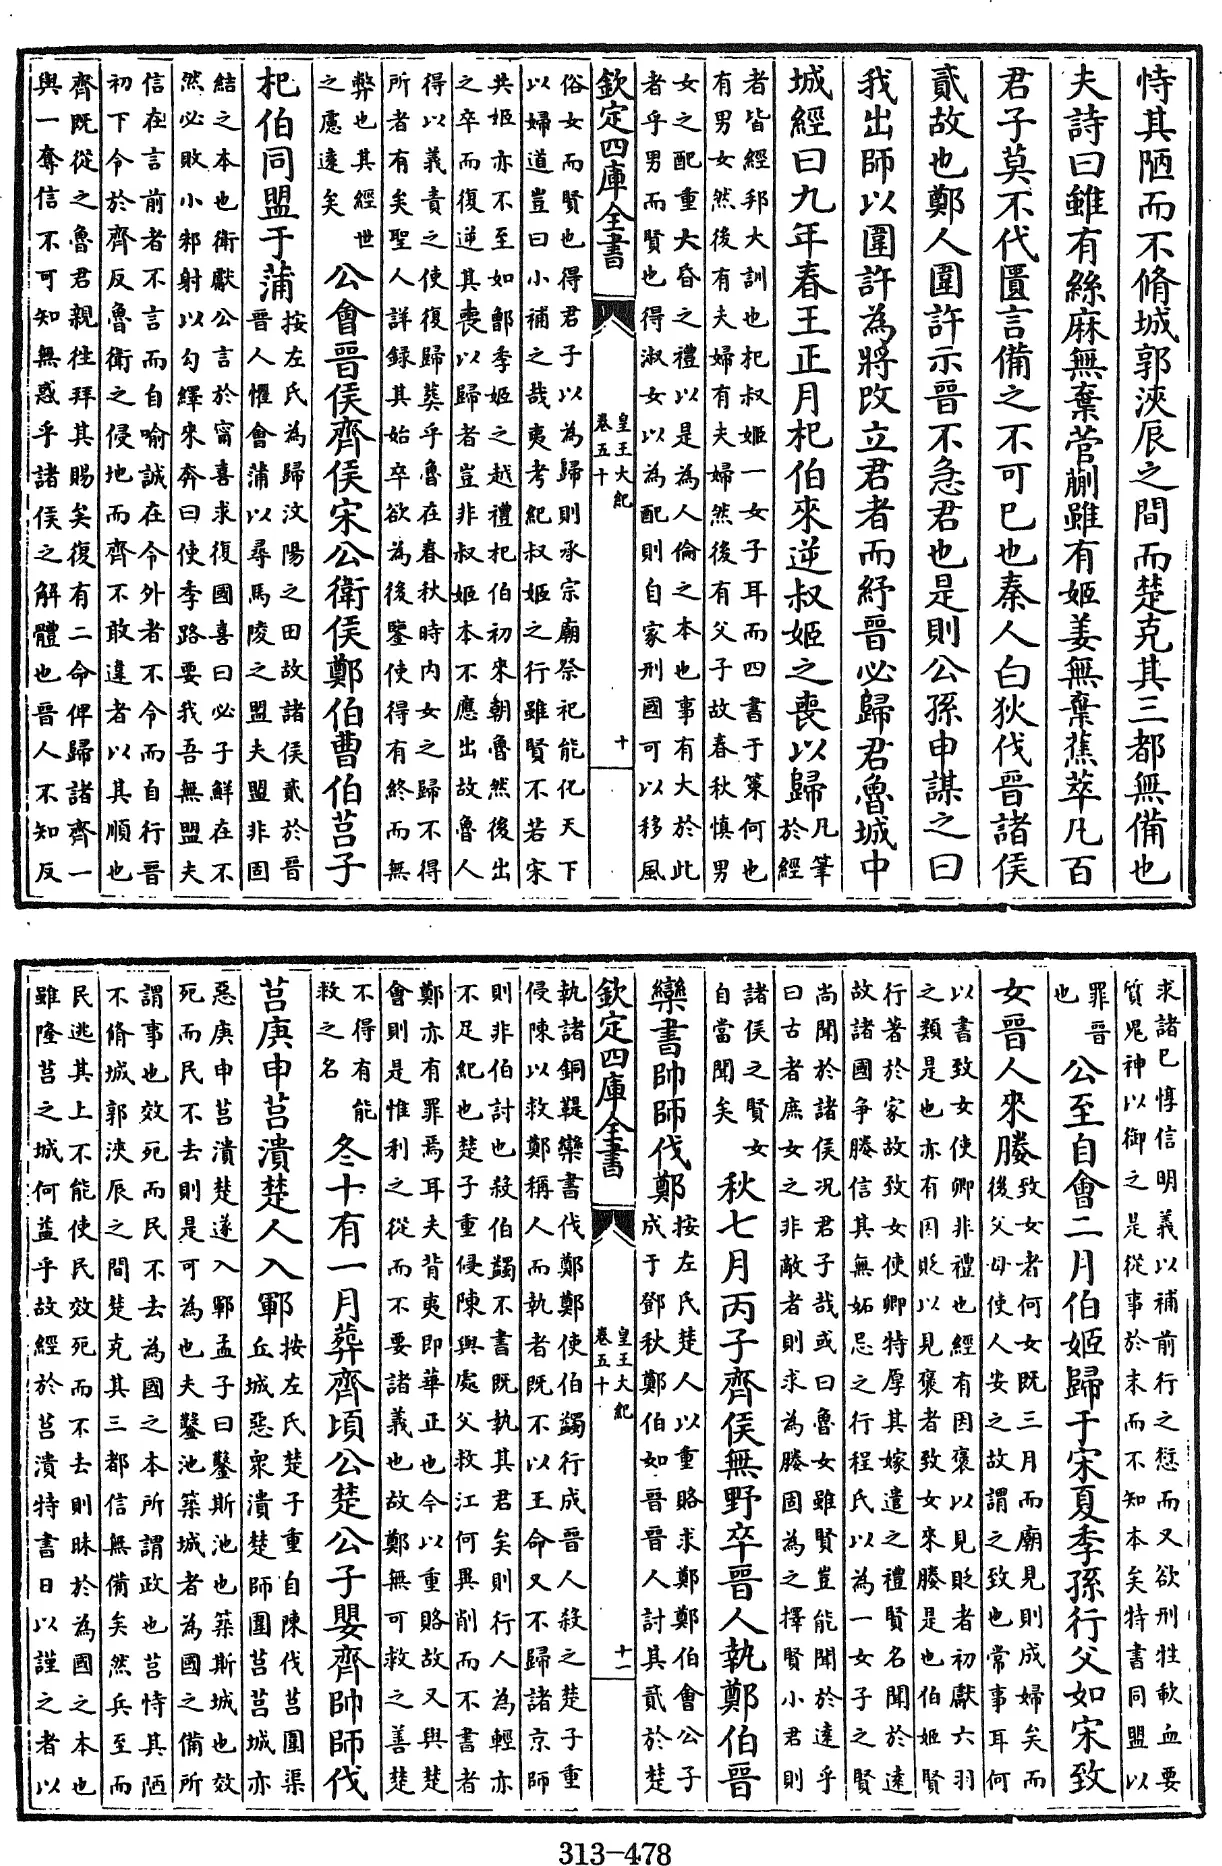 恃其陋而不脩城郭浹辰之間而楚克其三都無備也
夫詩曰雖有絲麻無棄菅蒯雖有姬姜無棄蕉萃凡百
君子莫不代匱言備之不可已也秦人白狄伐晉諸侯
貳故也鄭人圍許示晉不急君也是則公孫申謀之曰
我出師以圍許為將改立君者而紓晉必歸君魯城中
城經曰九年春王正月杞伯來逆叔姬之喪以歸
凡筆
於經
者皆經邦大訓也杞叔姬一女子耳而四書于策何也
有男女然後有夫婦有夫婦然後有父子故春秋慎男
女之配重大昏之禮以是為人倫之本也事有大於此
者乎男而賢也得淑女以為配則自家刑國可以移風
欽定四庫全書
皇王大紀
卷五十
十
俗女而賢也得君子以為歸則承宗廟祭祀能化天下
以婦道豈曰小補之哉夷考紀叔姬之行雖賢不若宋
共姬亦不至如鄫季姬之越禮杞伯初來朝魯然後出
之卒而復逆其喪以歸者豈非叔姬本不應出故魯人
得以義責之使復歸葬乎魯在春秋時内女之歸不得
所者有矣聖人詳録其始卒欲為後鑒使得有終而無
弊也其經世
之慮遠矣
公會晉侯齊侯宋公衛侯鄭伯曹伯莒子
杞伯同盟于蒲
按左氏為歸汶陽之田故諸侯貳於晉
晉人懼會蒲以尋馬陵之盟夫盟非固
結之本也衛獻公言於甯喜求復國喜曰必子鮮在不
然必敗小邾射以勾繹來奔曰使季路要我吾無盟夫
信在言前者不言而自喻誠在令外者不令而自行晉
初下令於齊反魯衛之侵地而齊不敢違者以其順也
齊既從之魯君親往拜其賜矣復有二命俾歸諸齊一
與一奪信不可知無惑乎諸侯之解體也晉人不知反
求諸已惇信明義以補前行之愆而又欲刑牲歃血要
質鬼神以御之是從事於末而不知本矣特書同盟以
罪晉
也
公至自會二月伯姬歸于宋夏季孫行父如宋致
女晉人來媵
致女者何女既三月而廟見則成婦矣而
後父母使人安之故謂之致也常事耳何
以書致女使卿非禮也經有因褒以見貶者初獻六羽
之類是也亦有因貶以見褒者致女來媵是也伯姬賢
行著於家故致女使卿特厚其嫁遣之禮賢名聞於遠
故諸國争媵信其無妬忌之行程氏以為一女子之賢
尚聞於諸侯况君子哉或曰魯女雖賢豈能聞於遠乎
曰古者庶女之非敵者則求為媵固為之擇賢小君則
諸侯之賢女
自當聞矣
秋七月丙子齊侯無野卒晉人執鄭伯晉
欒書帥師伐鄭
按左氏楚人以重賂求鄭鄭伯會公子
成于鄧秋鄭伯如晉晉人討其貳於楚
欽定四庫全書
皇王大紀
卷五十
十一
執諸銅鞮欒書伐鄭鄭使伯蠲行成晉人殺之楚子重
侵陳以救鄭稱人而執者既不以王命又不歸諸京師
則非伯討也殺伯蠲不書既執其君矣則行人為輕亦
不足紀也楚子重侵陳與處父救江何異削而不書者
鄭亦有罪焉耳夫背夷即華正也今以重賂故又與楚
會則是惟利之從而不要諸義也故鄭無可救之善楚
不得有能
救之名
冬十有一月葬齊頃公楚公子嬰齊帥師伐
莒庚申莒潰楚人入鄆
按左氏楚子重自陳伐莒圍渠
丘城惡衆潰楚師圍莒莒城亦
惡庚申莒潰楚遂入鄆孟子曰鑿斯池也築斯城也效
死而民不去則是可為也夫鑿池築城者為國之備所
謂事也效死而民不去為國之本所謂政也莒恃其陋
不脩城郭浹辰之間楚克其三都信無備矣然兵至而
民逃其上不能使民效死而不去則昧於為國之本也
雖隆莒之城何益乎故經於莒潰特書日以謹之者以
313-478